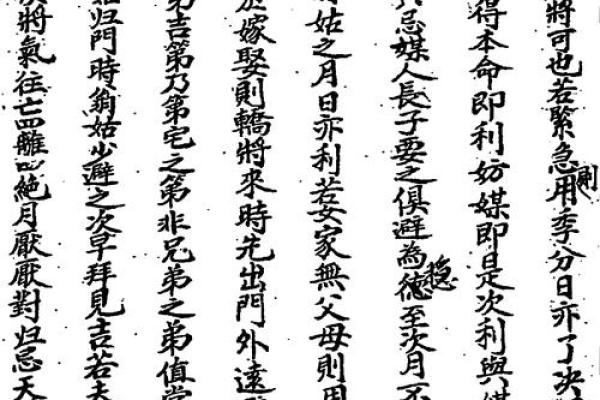 將可也若緊急則用季分日亦了决
得本命即利妨媒即是次利與媒
忌媒人長子要之俱避為穩德至次月不
姑之月日亦利若女家無父母則用
於嫁娶則轎將來時先出門外遠
吉第乃第宅之第非兄弟之弟值當
归門時翁姑少避之次早拜見吉若夫
將氣往亡四離四絶月厭厭對归忌天